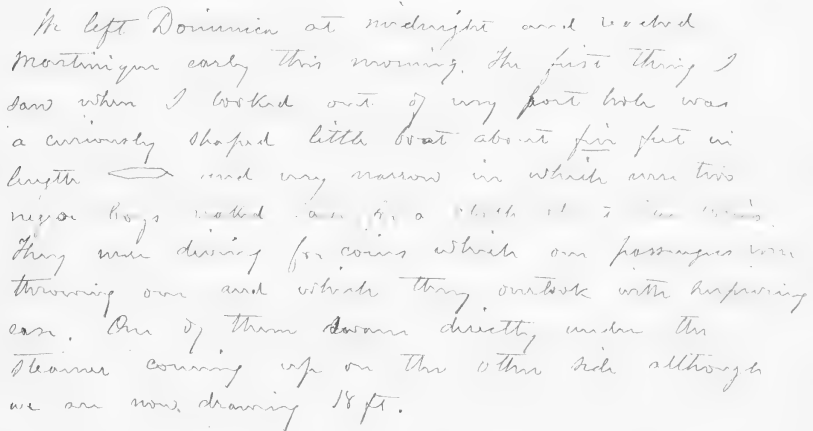 We left Dominica at midnight and reached
Martinique early this morning. The first thing I
saw when I looked out of my port hole was
a curiously shaped little boat about five feet in
length and very narrow in which were two
negro boys naked a
They were diving for coins which our passengers were
throwing over and which they overtook with surprising
ease. One of them swam directly under the
steamer coming up on the other side although
we are now drawing 18 ft.